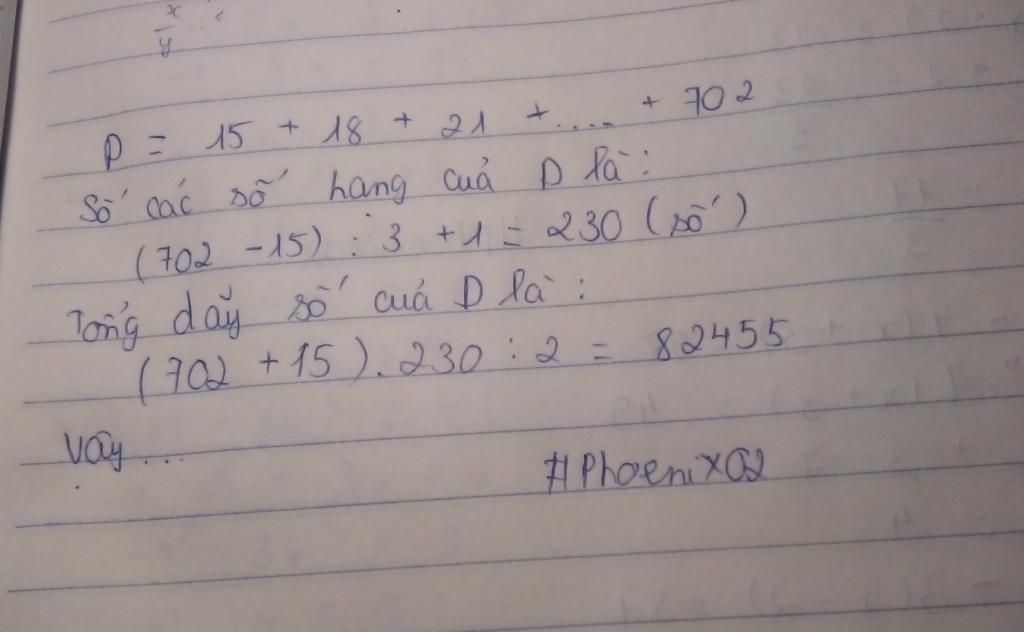 x
y
D = 15 + 18 + 21 +.... + 702
Số các số hạng cuả D là:
(702 - 15) : 3 + 1 = 230 (số)
Tổng dãy số cuả D là :
(702 + 15) . 230 : 2 = 82455
Vậy ...
#PhoeniX02